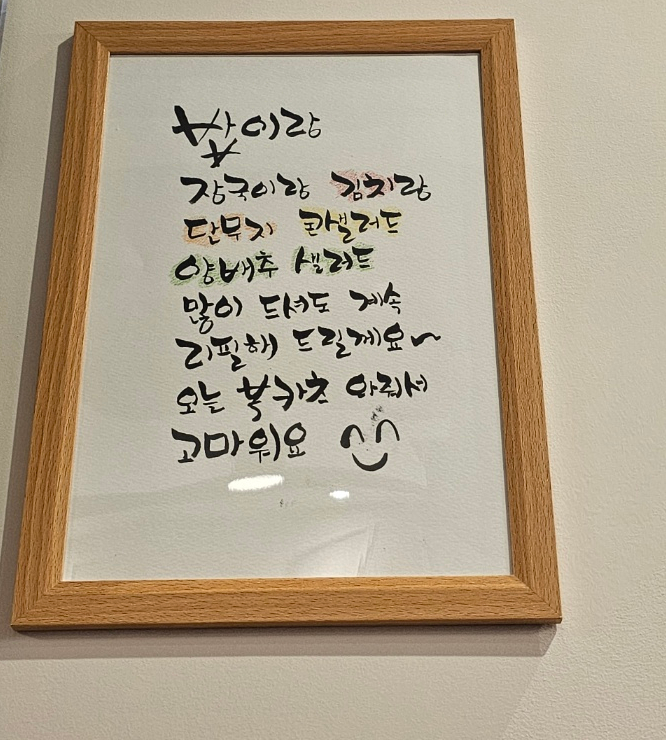 밥이랑
장국이랑 김치랑
단무지 콘샐러드
양배추 샐러드
많이 드셔도 계속
리필해 드릴께요~
오늘 북카츠 와줘서
고마워요